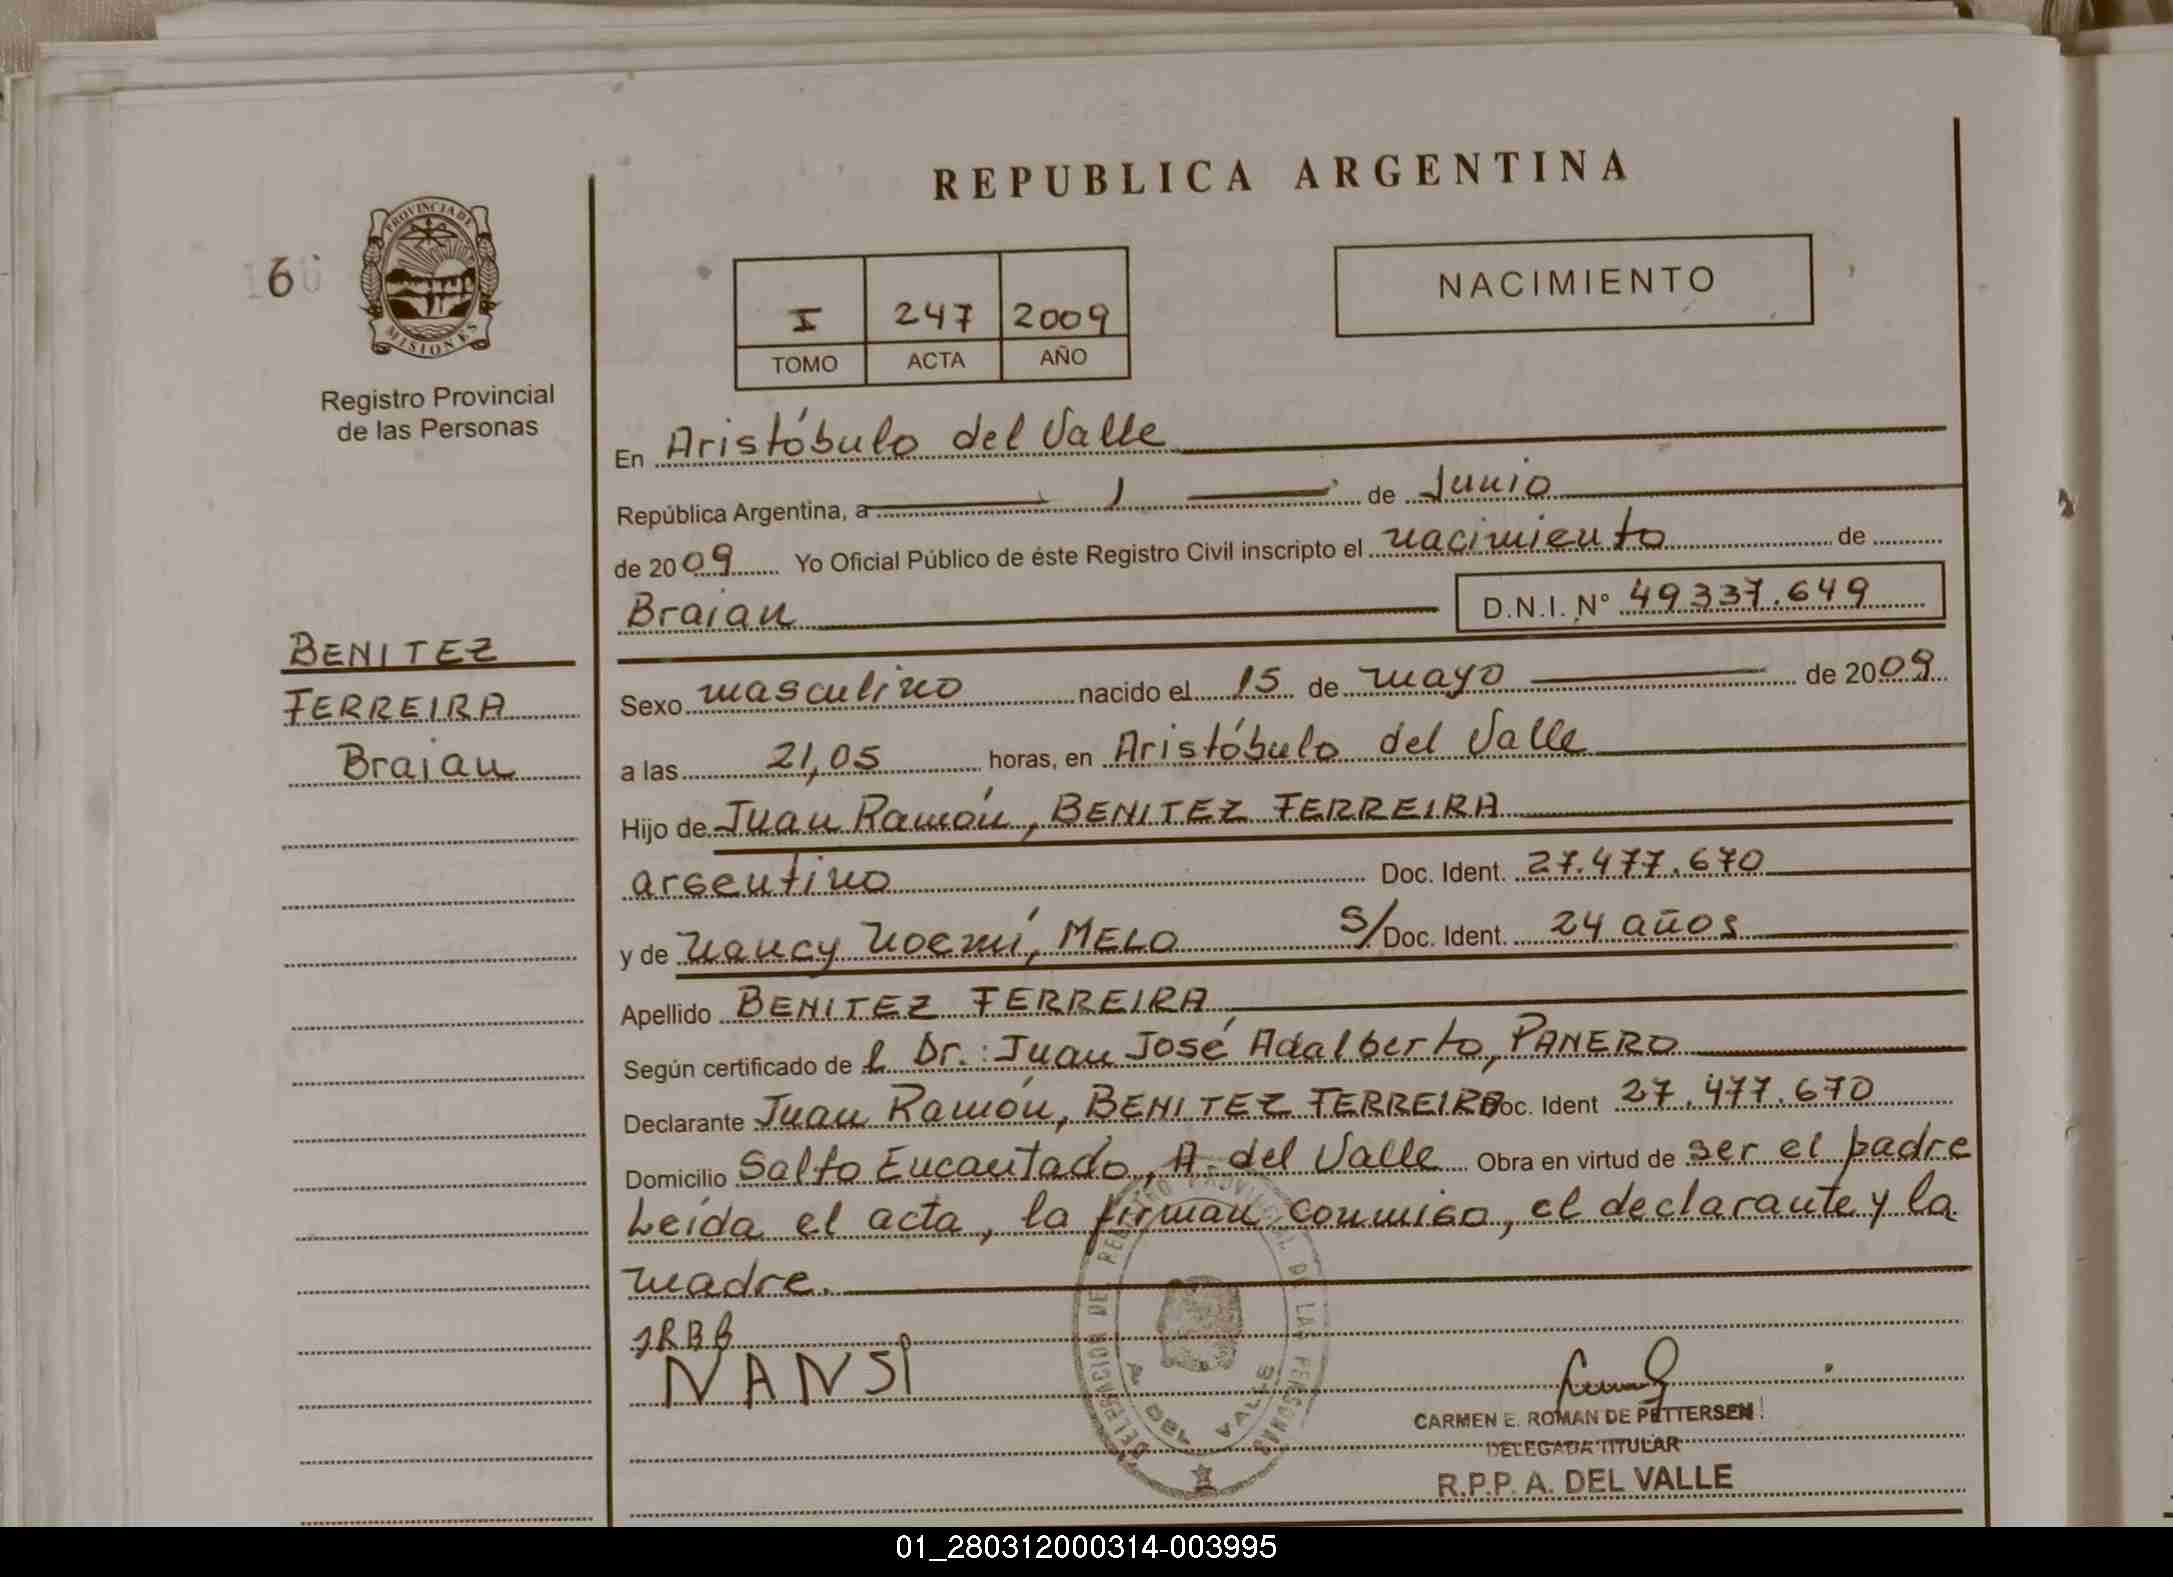 REPUBLICA ARGENTINA
6
PROVINCIA DE
MISIONES
Registro Provincial
de las Personas
I 247 2009
TOMO ACTA AÑO
NACIMIENTO
En Aristóbulo del Valle
República Argentina, a 1 de Junio
de 2009 Yo Oficial Público de éste Registro Civil inscripto el nacimiento de
Braian D.N.I. Nº 49337.649
BENITEZ
FERREIRA
Braian
Sexo masculino nacido el 15 de mayo de 2009
a las 21,05 horas, en Aristóbulo del Valle
Hijo de Juan Ramón, BENITEZ FERREIRA
argentino Doc. Ident. 27.477.670
y de Nancy Noemí, MELO S/Doc. Ident. 24 años
Apellido BENITEZ FERREIRA
Según certificado de l Dr.: Juan José Adalberto, PANERO
Declarante Juan Ramón, BENITEZ FERREIRA Doc. Ident 27.477.670
Domicilio Salto Encantado, A. del Valle Obra en virtud de ser el padre
Leída el acta, la firman conmigo, el declarante y la
madre.
JRBB
NANSI
DELEGACION DEL REGISTRO PROVINCIAL DE LAS PERSONAS
A. DEL VALLE
CARMEN E. ROMAN DE PETTERSEN
DELEGADA TITULAR
R.P.P. A. DEL VALLE
01_280312000314-003995